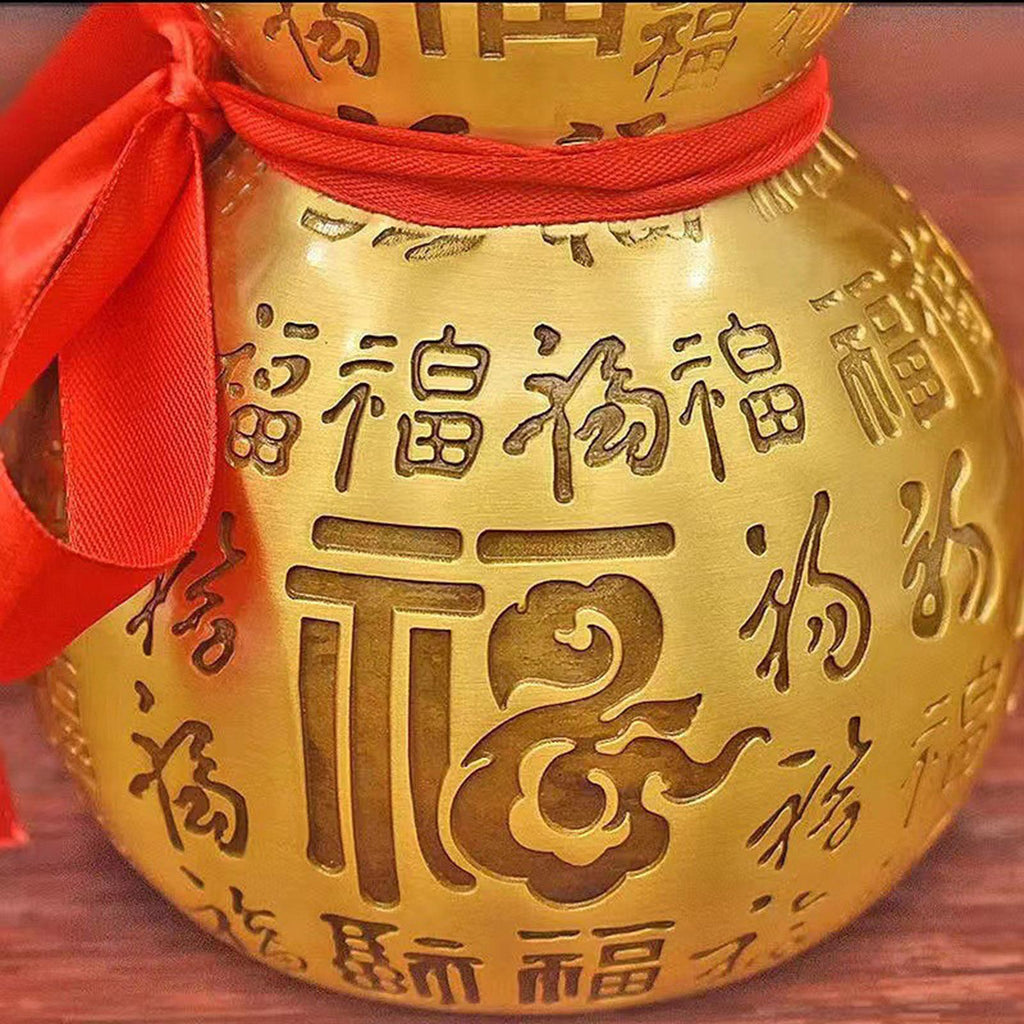 福 福 福
福 福 福 福 福 福
福
福 福 福
福 福 福
福 福